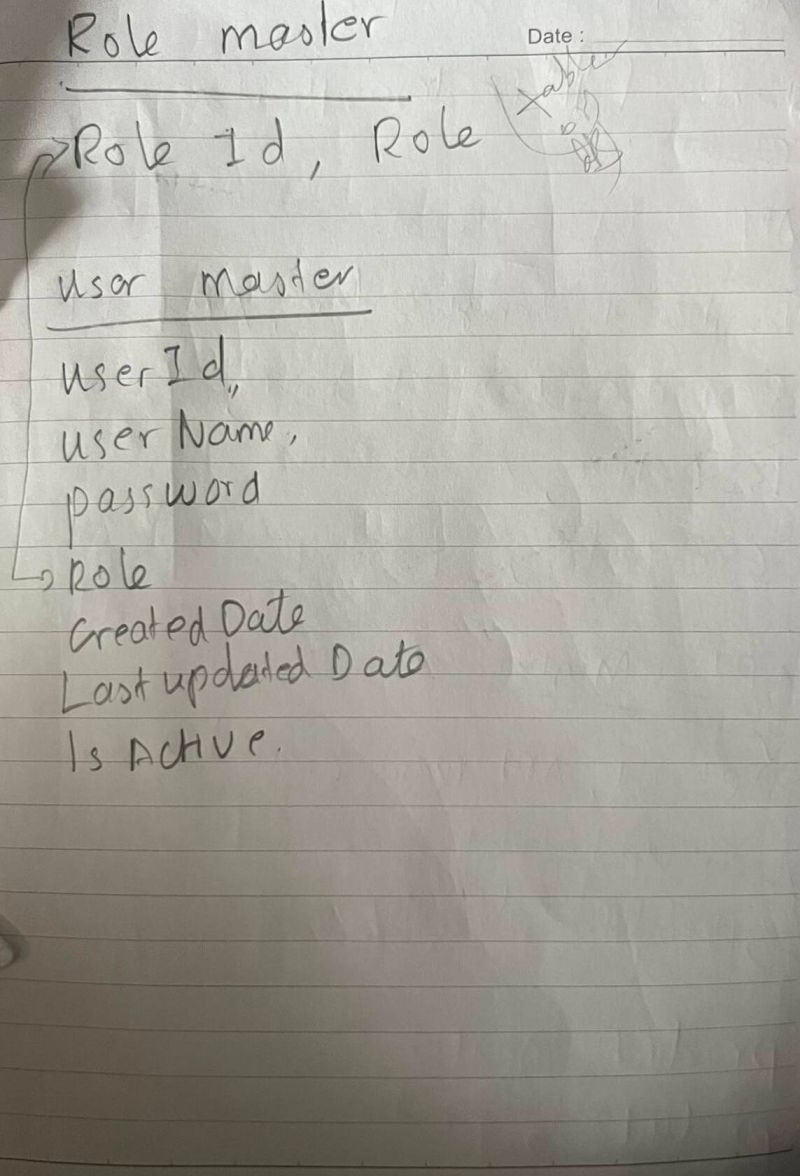 Role master
Date :
Role Id, Role
user master
userId,,
user Name,
password
Role
Created Date
Last updated Date
Is Active.